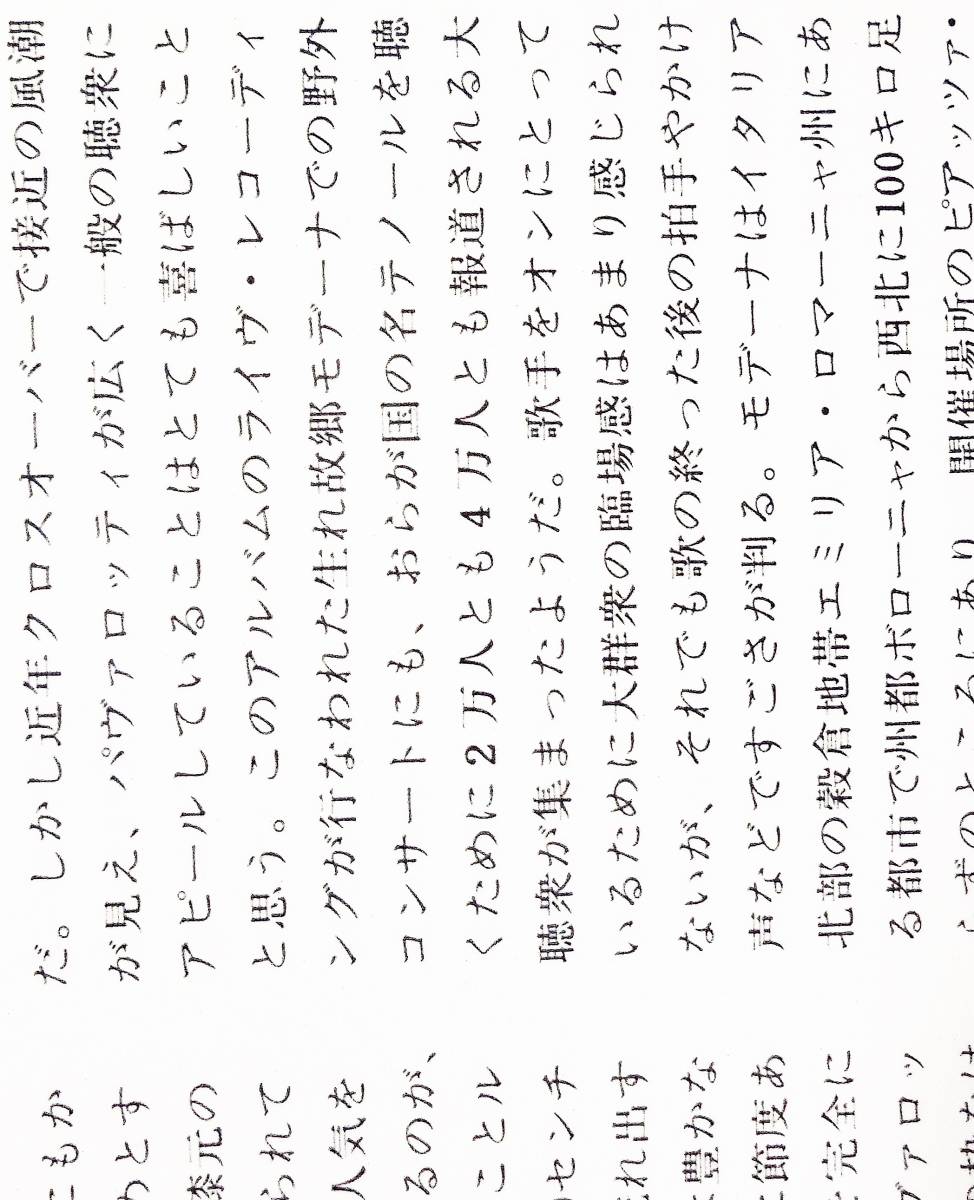 もか
とす
元の
られて
人気を
るのが、
ことル
センチ
れ出す
豊かな
節度あ
完全に
ヴァロッ
だ。しかし近年クロスオーバーで接近の風潮
が見え、パヴァロッティが広く一般の聴衆に
アピールしていることはとても喜ばしいこと
と思う。このアルバムのライヴ・レコーディ
ングが行なわれた生れ故郷モデーナでの野外
コンサートにも、おらが国の名テノールを聴
くために2万人とも4万人とも報道される大
聴衆が集まったようだ。歌手をオンにとって
いるために大群衆の臨場感はあまり感じられ
ないが、それでも歌の終った後の拍手やかけ
声などですごさが判る。モデーナはイタリア
北部の穀倉地帯エミリア・ロマーニャ州にあ
る都市で州都ボローニャから西北に100キロ足
らずのところにあり 開催場所のピアッツァ・